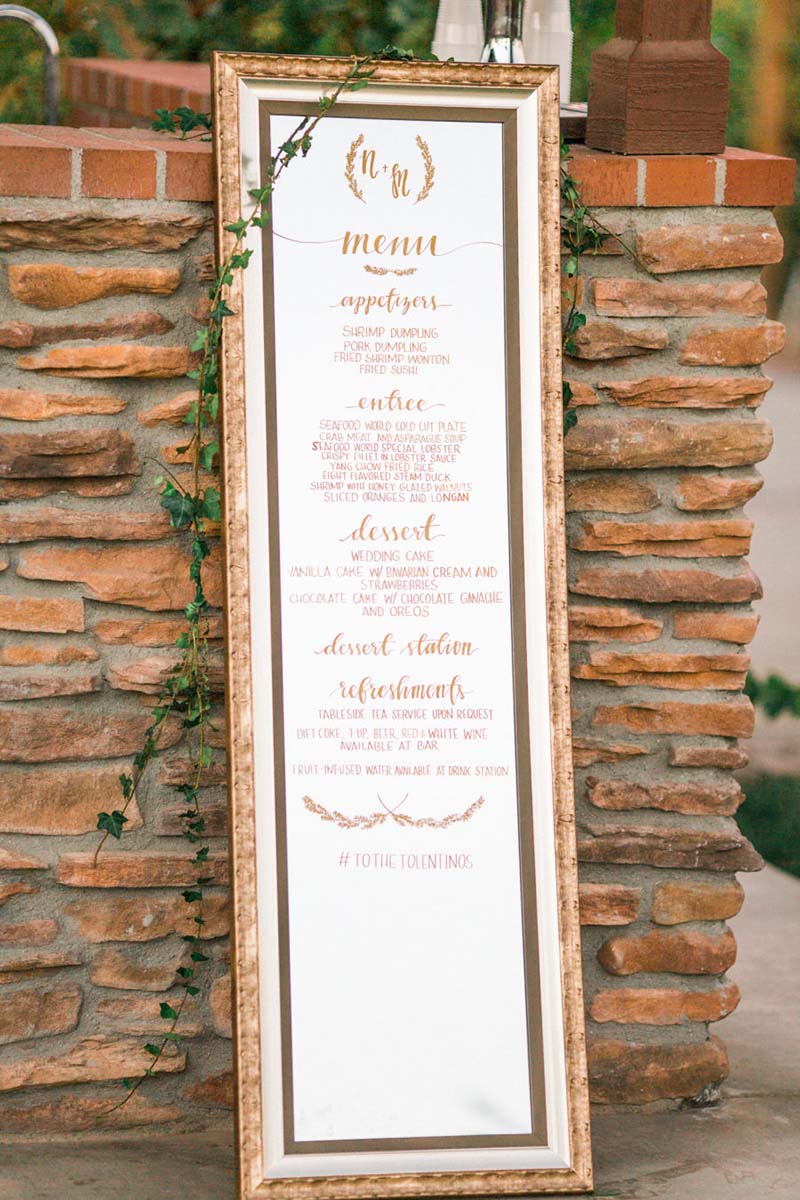 N + M
menu
appetizers
SHRIMP DUMPLING
PORK DUMPLING
FRIED SHRIMP WONTON
FRIED SUSHI
entree
SEAFOOD WORLD COLD CUT PLATE
CRAB MEAT AND ASPARAGUS SOUP
SEAFOOD WORLD SPECIAL LOBSTER
CRISPY FILLET IN LOBSTER SAUCE
YANG CHOW FRIED RICE
EIGHT FLAVORED STEAM DUCK
SHRIMP WITH HONEY GLAZED WALNUTS
SLICED ORANGES AND LONGAN
dessert
WEDDING CAKE
VANILLA CAKE W/ BAVARIAN CREAM AND
STRAWBERRIES
CHOCOLATE CAKE W/ CHOCOLATE GANACHE
AND OREOS
dessert station
refreshments
TABLESIDE TEA SERVICE UPON REQUEST
DIET COKE, 7 UP, BEER, RED & WHITE WINE
AVAILABLE AT BAR
FRUIT-INFUSED WATER AVAILABLE AT DRINK STATION
#TOTHETOLENTINOS